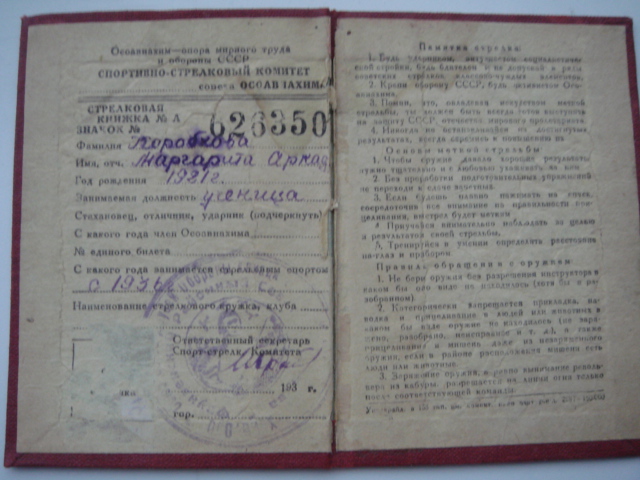 Осоавиахим—опора мирного труда
и обороны СССР
СПОРТИВНО-СТРЕЛКОВЫЙ КОМИТЕТ
совета ОСОАВИАХИМА
СТРЕЛКОВАЯ
КНИЖКА № А
ЗНАЧОК №
626350
Фамилия Коробкова
Имя, отч. Маргарита Аркад
Год рождения 1921 г.
Занимаемая должность ученица
Стахановец, отличник, ударник (подчеркнуть)
С какого года член Осоавиахима
№ единого билета
С какого года занимается стрелковым спортом
с 1936
Наименование стрелкового кружка, клуба
Ответственный секретарь
Спорт-стрелк. Комитета
193 г.
гор.
Памятка стрелка
1. Будь ударником, энтузиастом социалистической стройки, будь бдителен и не допускай в ряды
советских стрелков классово-чуждых элементов.
2. Крепи оборону СССР, будь активистом Осоавиахима.
3. Помни, что, овладевая искусством меткой
стрельбы, ты должен быть всегда готов выступить
на защиту СССР, отечества мирового пролетариата.
4. Никогда не останавливайся на достигнутых
результатах, всегда стремись к повышению их.
Основы меткой стрельбы
1. Чтобы оружие давало хороший результат,
нужно тщательно и с любовью ухаживать за ним.
2. Без проработки подготовительных упражнений
не переходи к сдаче зачетных.
3. Если будешь плавно нажимать на спуск,
сосредоточив все внимание на правильности прицеливания, выстрел будет метким.
4. Приучайся внимательно наблюдать за целью
и результатом своей стрельбы.
5. Тренируйся в умении определять расстояния
на-глаз и прибором.
Правила обращения с оружием
1. Не бери оружия без разрешения инструктора в
каком бы оно виде ни находилось (хотя бы и разобранном).
2. Категорически запрещается прикладка, наводка и прицеливание в людей или животных в
каком бы виде оружие ни находилось (не заряжено, разобрано, неисправное и т. д.), а также
прицеливание в мишень даже из незаряженного
оружия, если в районе расположения мишени есть
люди или животные.
3. Заряжание оружия, и равно вынимание револьвера из кобуры, разрешается на линии огня только
после соответствующей команды.